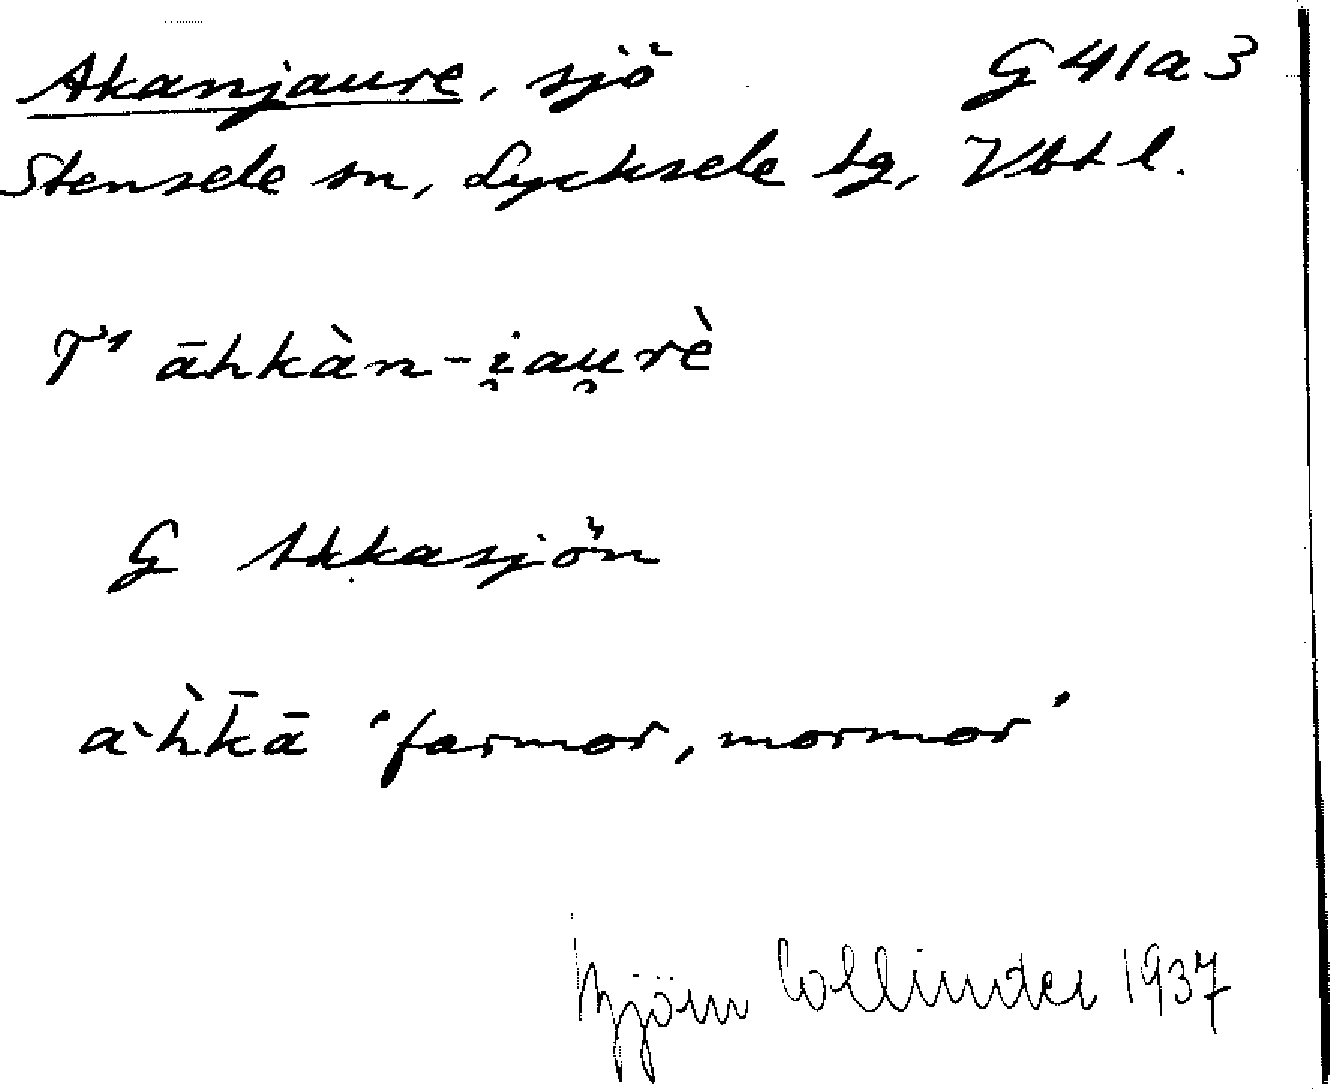 Akanjaure, sjö G41a3
Stensele sn, Lycksele tg, Vbtl.
T¹ āhkàn-i̯au̯rè
G Akkasjön
a`h̀k̄ā "farmor, mormor"
Björn Collinder 1937